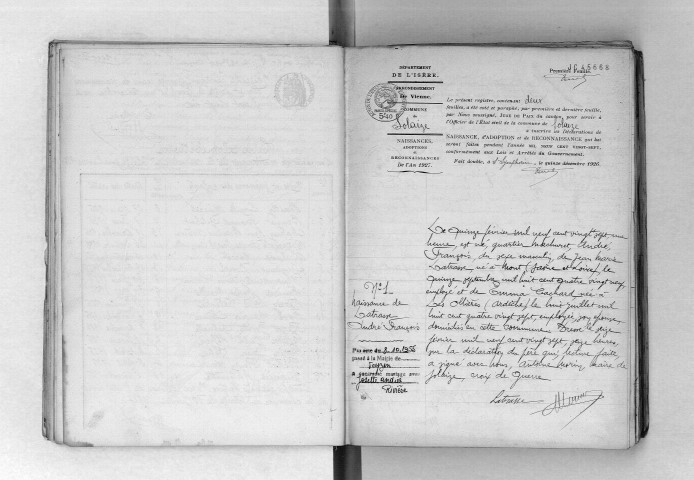 DÉPARTEMENT
DE L'ISÈRE.
ARRONDISSEMENT
de Vienne.
COMMUNE
de
Solaize
NAISSANCES,
ADOPTIONS
et
RECONNAISSANCES
De l'An 1927.
Première Feuille.
Le présent registre, contenant deux
feuilles, a été coté et paraphé, par première et dernière feuille,
par Nous soussigné, JUGE DE PAIX du canton pour servir à
l'Officier de l'État civil de la commune de Solaize
à inscrire les Déclarations de
NAISSANCE, D'ADOPTION et de RECONNAISSANCE qui lui
seront faites pendant l'année MIL NEUF CENT VINGT-SEPT,
conformément aux Lois et Arrêtés du Gouvernement.
Fait double, à St Symphorien, le quinze décembre 1926.
N° 1
Naissance de
Latrasse
André François
Par acte du 2.10.1956
passé à la Mairie de
Feyzin
a contracté mariage avec
Josette
Rivière
Le quinze février mil neuf cent vingt sept, une
heure, est né, quartier André
François, du sexe masculin, de Jean Marie
Latrasse né à Mont (Saône et Loire), le
quinze septembre mil huit cent quatre vingt neuf,
employé et de Emma née à
Les Ollières (Ardèche) le huit juillet mil
huit cent quatre vingt sept, employée, son épouse
domiciliés en cette commune. Dressé le seize
février mil neuf cent vingt sept, heures,
sur la déclaration du père qui, lecture faite,
a signé avec nous, Antoine maire de
Solaize, croix de Guerre.
Latrasse